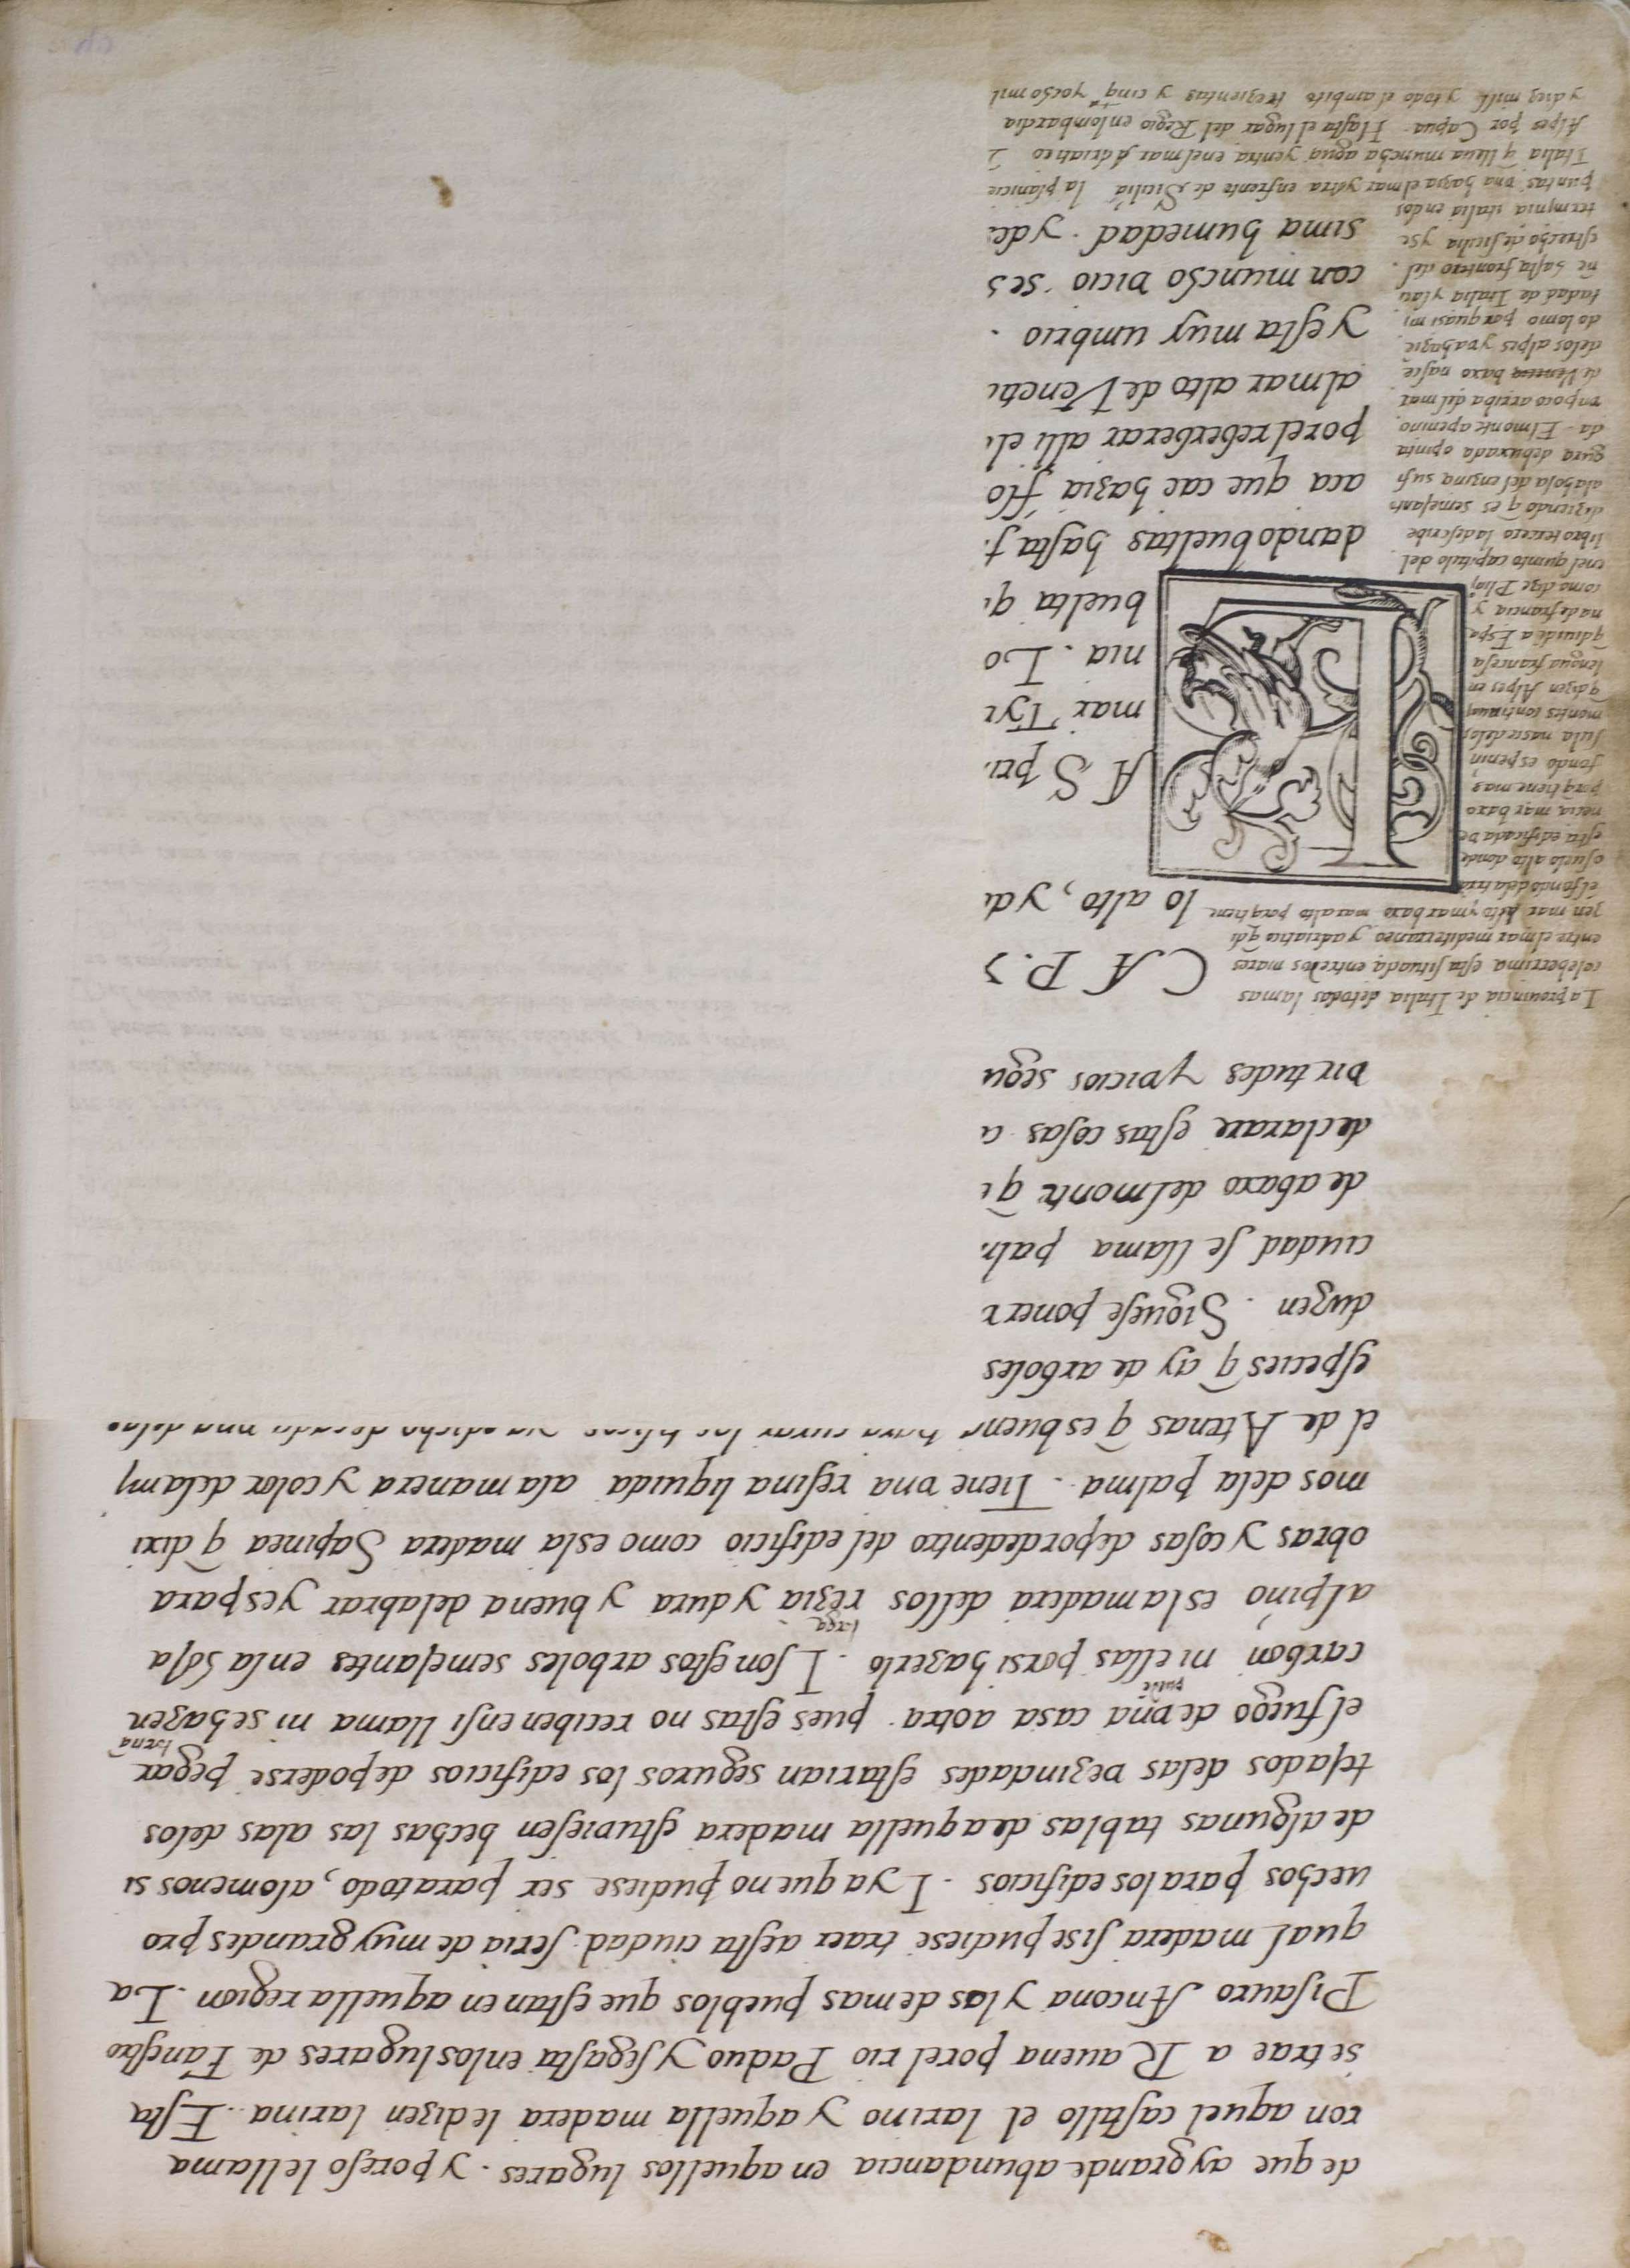 de que ay grande abundancia en aquellos lugares. y poreso le llama
ron aquel castillo el larino y aquella madera le dizen larina. Esta
se trae a Rauena por el rio Paduo y segasta en los lugares de Fanestro
Pisauro Ancona y los demas pueblos que estan en aquella region. La
qual madera si se pudiese traer aesta ciudad seria de muy grandes pro
uechos para los edificios. I ya que no pudiese ser para todo, a lo menos si
de algunas tablas de aquella madera estuviesen hechas las alas delos
tejados delas vezindades estarian seguros los edificios de poderse pegar
el fuego de vna casa a otra pues estas no reciben en si llama ni se hazen
carbon ni ellas por si hazerlo. I son estos arboles semejantes en la hoja
al pino es la madera dellos rezia y dura y buena de labrar y es para
obras y cosas de por de dentro del edificio como es la madera Sapinea q̃ dixi
mos dela palma. Tiene vna resina liquida a la manera y color dela mj
el de Atenas q̃ es bueno para curar los tisicos
especies q̃ ay de arboles
duzen. Siguese poner
ciudad se llama
de abaxo del monte
declarare estas cosas
virtudes y vicios segu
La prouincia de Italia de todas la mas
celeberrima esta situada entre dos mares
entre el mar mediterraneo y adriatico q̃ di
zen mar alto y mar baxo mar alto porq̃ tiene
el fondo
o suelo alto donde
esta edificada Ve
necia mar baxo
porq̃ tiene mas
fondo
sula nasce delos
montes
q̃ dizen Alpes en
lengua francesa
q̃ diuide a Espa
na de francia y
como dize Plinj
en el quinto capitulo del
libro tercero la descriue
diziendo q̃ es semejante
a la hoja del enzina su fi
gura debuxada o pinta
da. El monte apenino
vn poco arriba del mar
de baxo nasce
delos alpes
do lomo por quasi mi
tad de Italia
hasta frontero del
estrecho de sicilia y se
termjnia italia en dos
puntas vna hazia el mar y otra enfrente de Sicilia la planicie
Italia q̃ lleua muncha agua y entra en el mar Adriatico
Alpes por Capua Hasta el lugar del Regio en lombardia
y diez mill y todo el ambito trezientas y cinq̃ᵗᵃ y ocho mil
CAP.
lo alto, y
AS
mar Tyr
nia. Lo
buelta
dando bueltas hasta
aca que cae hazia
por el reberberar alli el
al mar alto de Veneci
y esta muy umbrio.
con muncho vicio
sima humedad. y